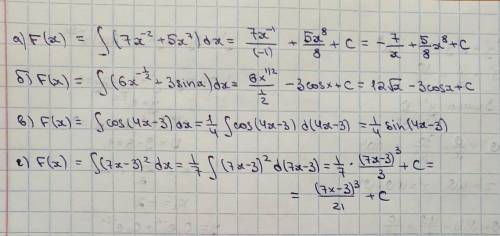 а) F(x) = ∫(7x⁻² + 5x⁷)dx = 7x⁻¹/(-1) + 5x⁸/8 + C = -7/x + 5/8 x⁸ + C
б) F(x) = ∫(6x^(-1/2) + 3sinx)dx = 6x^(1/2)/(1/2) - 3cosx + C = 12√x - 3cosx + C
в) F(x) = ∫cos(4x-3)dx = 1/4 ∫cos(4x-3)d(4x-3) = 1/4 sin(4x-3)
г) F(x) = ∫(7x-3)² dx = 1/7 ∫(7x-3)² d(7x-3) = 1/7 · (7x-3)³/3 + C =
= (7x-3)³/21 + C